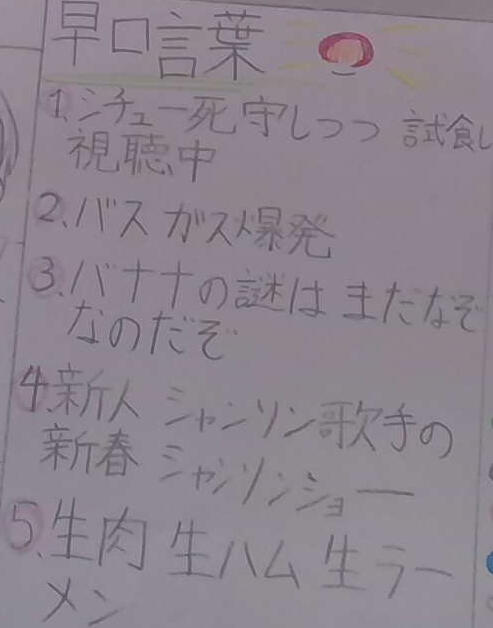 早口言葉
1.シチュー死守しつつ 試食し
視聴中
2.バス ガス爆発
3.バナナの謎は まだなぞ
なのだぞ
4.新人 シャンソン歌手の
新春 シャンソンショー
5.生肉 生ハム 生ラー
メン